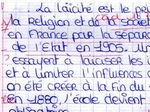 La laïcité est le pri
la religion et de l'
en France par la sépara
de l'État en 1905. Un
essayent à laïciser les i
et à limiter l'influences d
on été créer à la fin du
en 1880, l'école devient